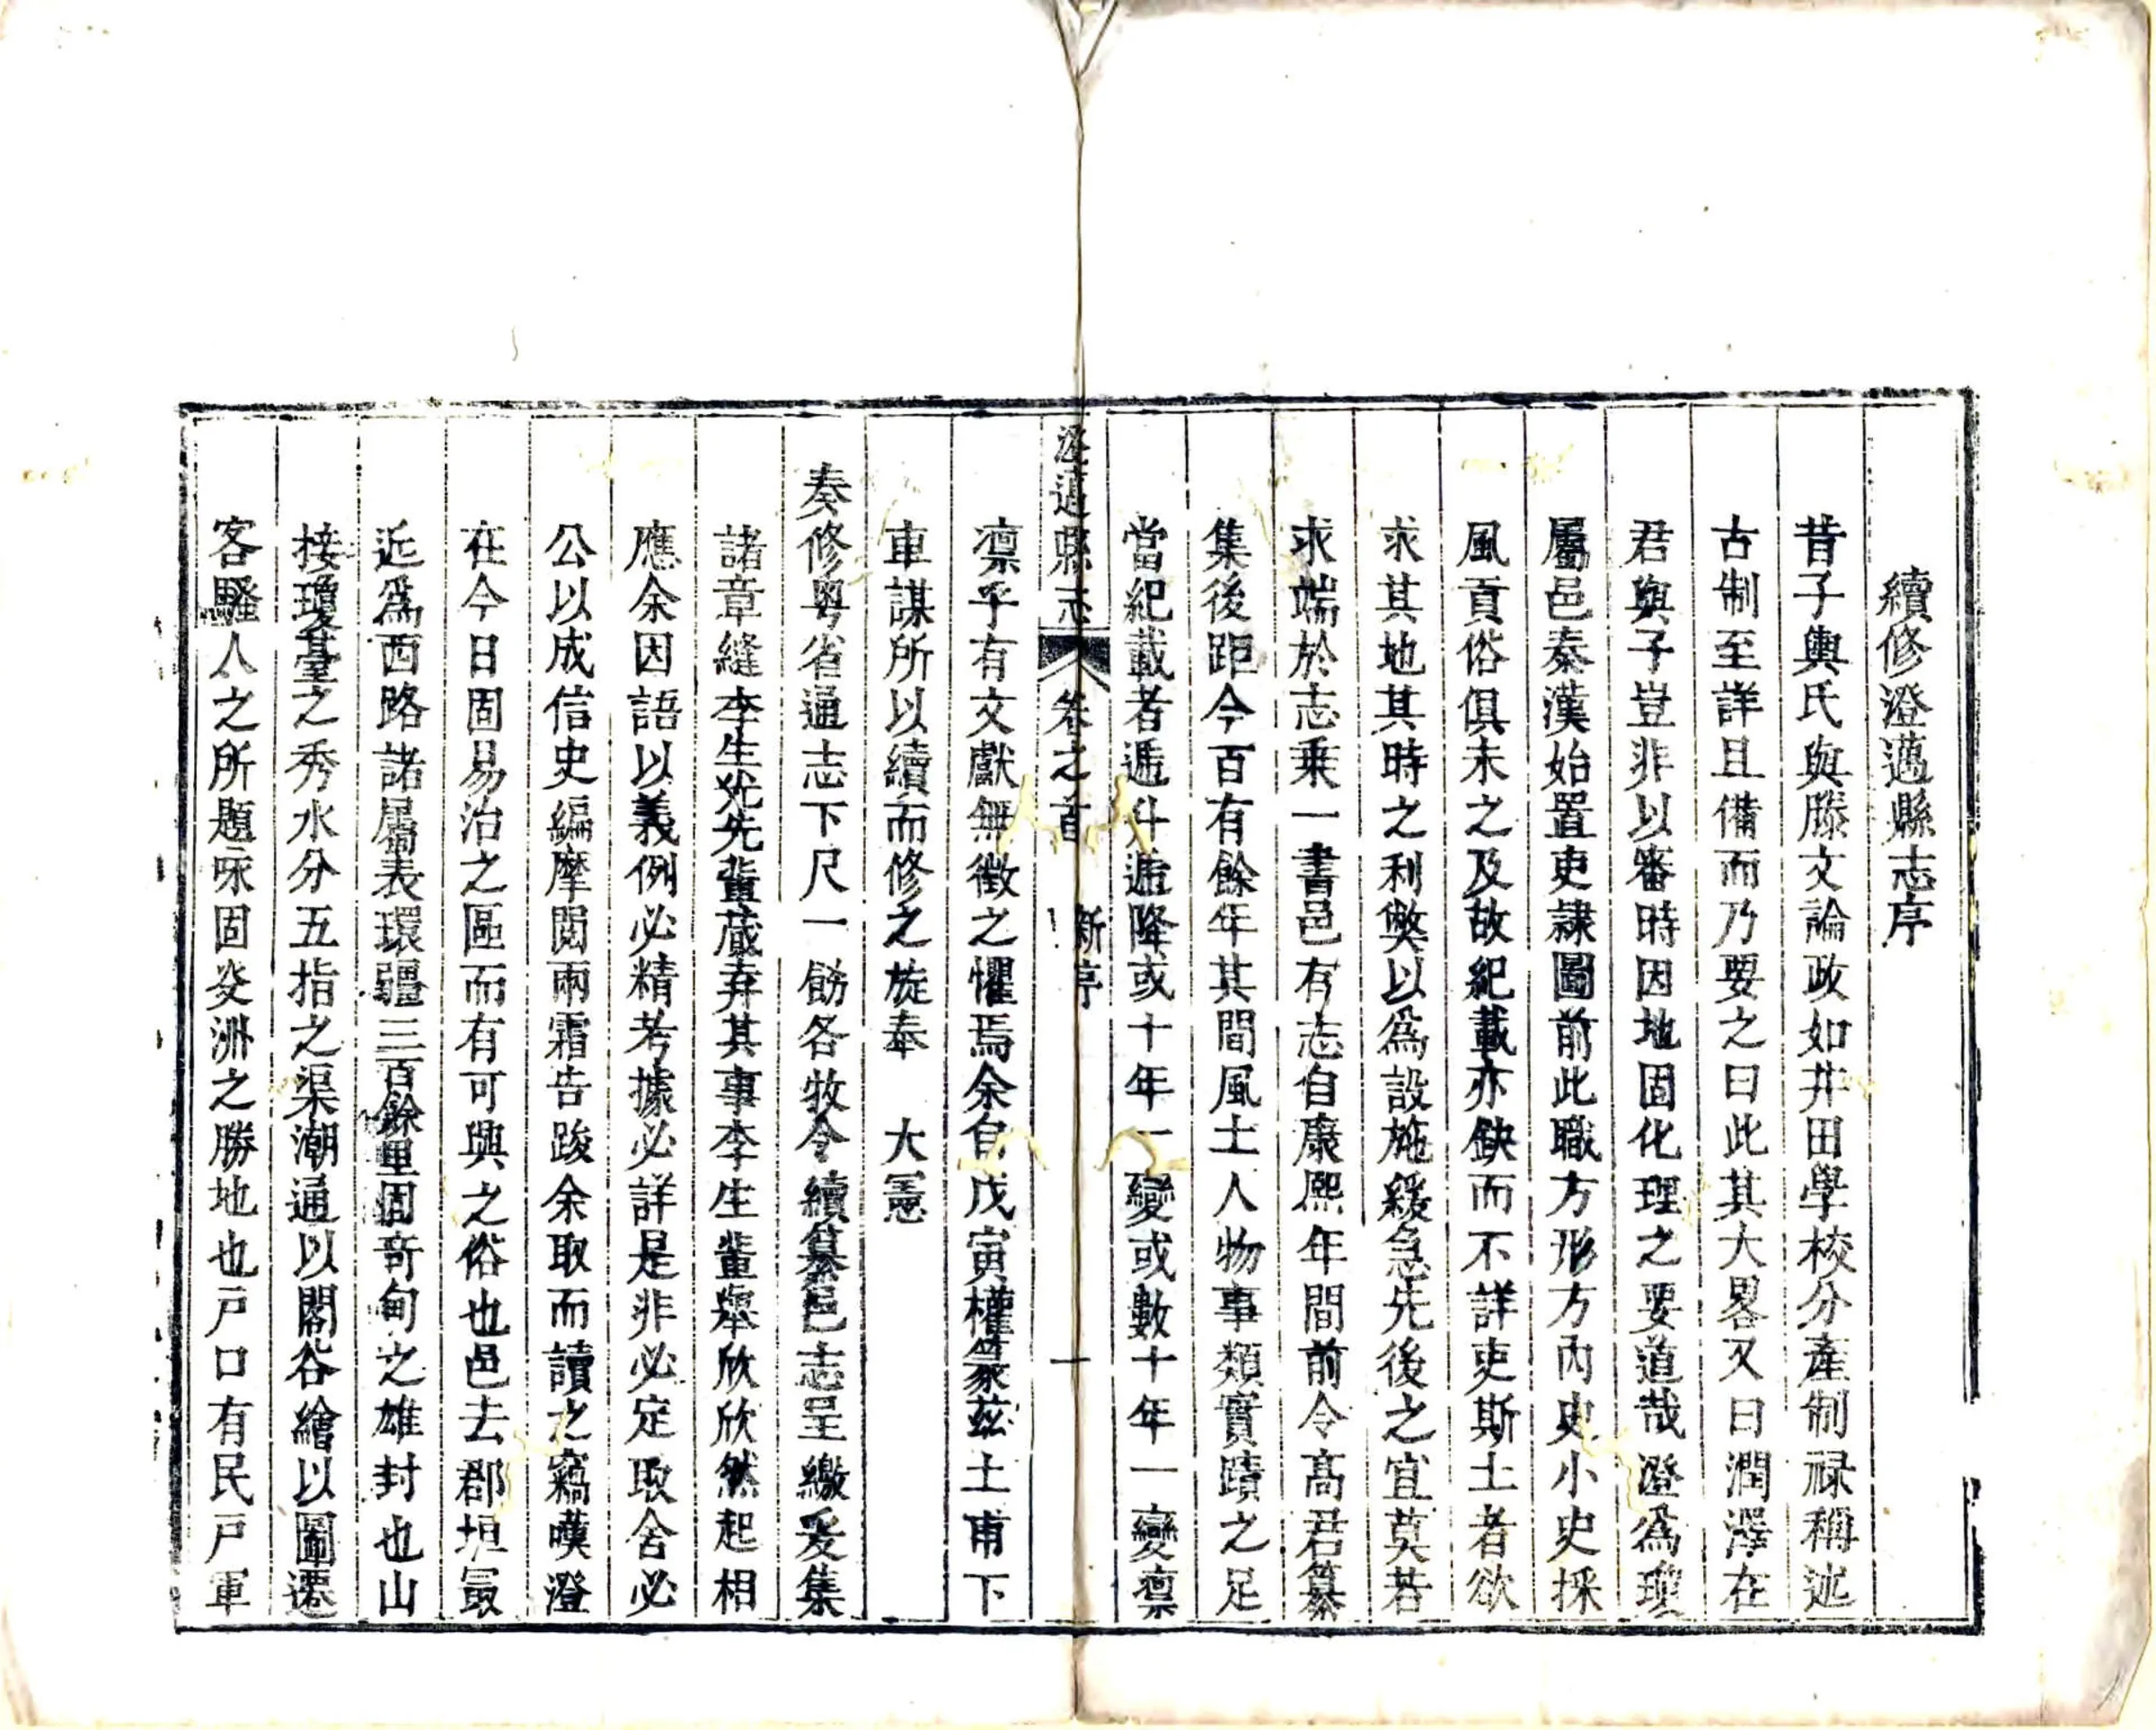 續修澄邁縣志序
昔子輿氏與滕文論政如井田學校分產制祿稱述
古制至詳且備而乃要之曰此其大畧又曰潤澤在
君與子豈非以審時因地固化理之要道哉澄爲瓊
屬邑秦漢始置吏隷圖前此職方形方內史小史採
風貢俗俱未之及故紀載亦缺而不詳吏斯土者欲
求其地其時之利獘以爲設施緩急先後之宜莫若
求端於志乗一書邑有志自康熙年間前令高君纂
集後距今百有餘年其間風土人物事類實蹟之足
當紀載者遞升遞降或十年一變或數十年一變凛
澄邁縣志 卷之首 新序 一
凛乎有文獻無徵之懼焉余自戊寅權篆茲土甫下
車謀所以續而修之旋奉 大憲
奏修粤省通志下尺一飭各牧令續纂邑志呈繳爰集
諸章縫李生光先輩蔵弆其事李生輩舉欣欣然起相
應余因語以義例必精考據必詳是非必定取舍必
公以成信史編摩閲兩霜告踆余取而讀之竊嘆澄
在今日固易治之區而有可興之俗也邑去郡垣最
近爲西路諸屬表環疆三百餘里固竒甸之雄封也山
接瓊臺之秀水分五指之渠潮通以閣谷繪以圖遷
客騷人之所題咏固炎洲之勝地也戸口有民戸軍